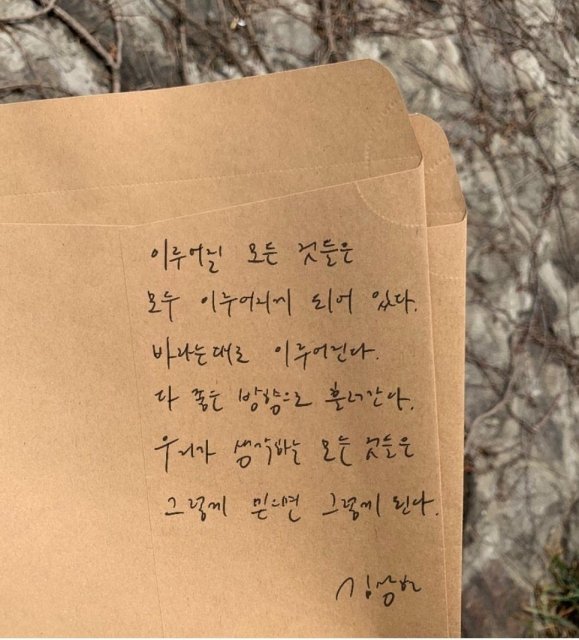 이루어질 모든 것들은
모두 이루어지게 되어 있다.
바라는대로 이루어진다.
다 좋은 방향으로 흘러간다.
우리가 생각하는 모든 것들은
그렇게 믿으면 그렇게 된다.